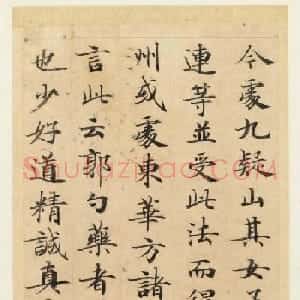 今處九疑山其女子
連等並受此法而得
州或處東華方諸
言此云郭勺藥者
也少好道精誠真